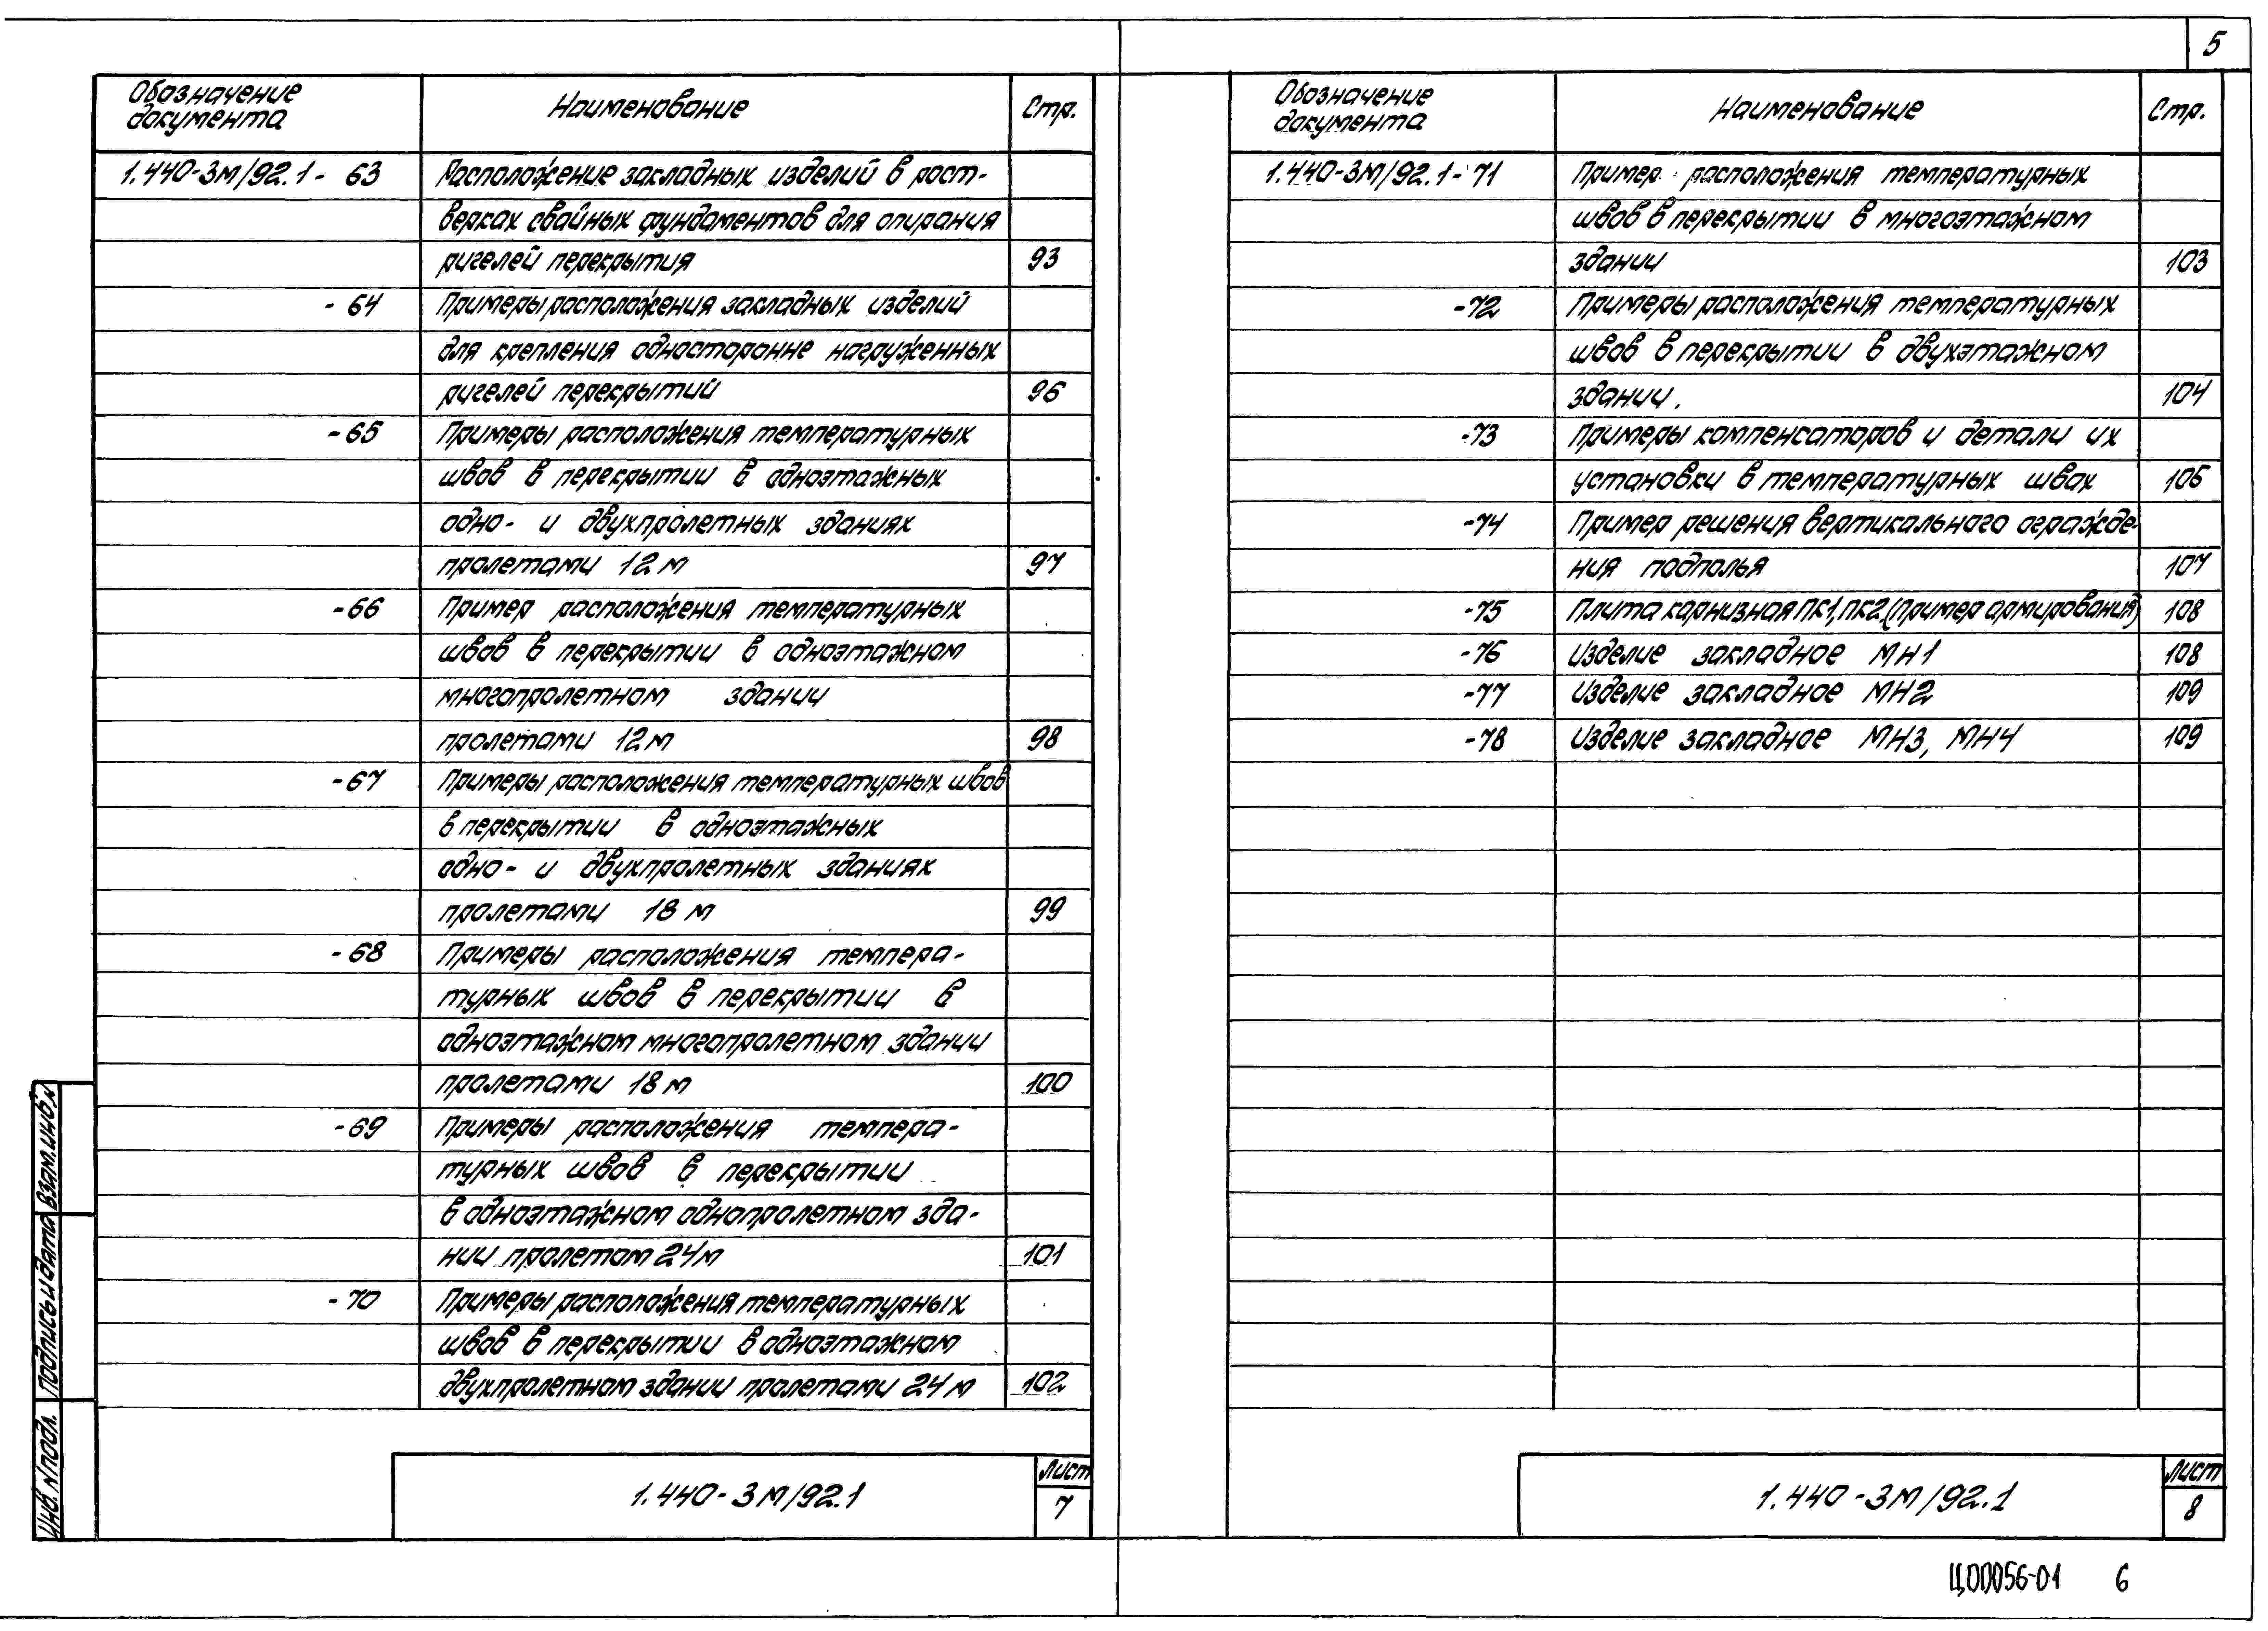 5
Обозначение документа Наименование Стр.
1.440-3М/92.1- 63 Расположение закладных изделий в рост-
верках свайных фундаментов для опирания
ригелей перекрытия 93
- 64 Примеры расположения закладных изделий
для крепления односторонне нагруженных
ригелей перекрытий 96
- 65 Примеры расположения температурных
швов в перекрытии в одноэтажных
одно- и двухпролетных зданиях
пролетами 12м 97
- 66 Пример расположения температурных
швов в перекрытии в одноэтажном
многопролетном здании
пролетами 12м 98
- 67 Примеры расположения температурных швов
в перекрытии в одноэтажных
одно- и двухпролетных зданиях
пролетами 18 м 99
- 68 Примеры расположения темпера-
турных швов в перекрытии в
одноэтажном многопролетном здании
пролетами 18 м 100
- 69 Примеры расположения темпера-
турных швов в перекрытии
в одноэтажном однопролетном зда-
нии пролетом 24м 101
- 70 Примеры расположения температурных
швов в перекрытии в одноэтажном
двухпролетном здании пролетами 24 м 102
1.440-3М/92.1
Лист
7
Инв. N подл. Подпись и дата Взам.инв.N
Обозначение документа Наименование Стр.
1.440-3М/92.1- 71 Пример расположения температурных
швов в перекрытии в многоэтажном
здании 103
-72 Примеры расположения температурных
швов в перекрытии в двухэтажном
здании. 104
-73 Примеры компенсаторов и детали их
установки в температурных швах 106
-74 Пример решения вертикального огражде-
ния подполья 107
-75 Плита карнизная ПК1, ПК2.(Пример армирования) 108
-76 Изделие закладное МН1 108
-77 Изделие закладное МН2 109
-78 Изделие закладное МН3, МН4 109
1.440-3М/92.1
Лист
8
Ц00056-01 6